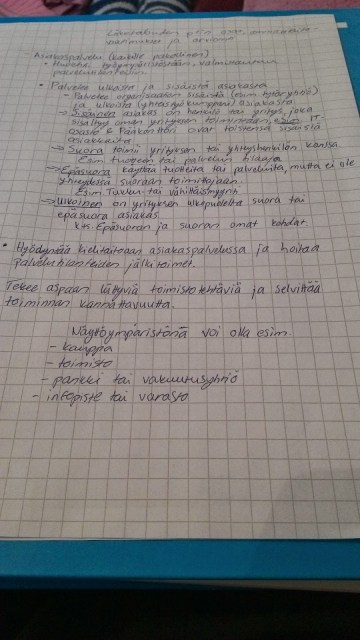 Liiketalouden pt:n osat, ammattitaito-
vaatimukset ja arviointi
Asiakaspalvelu (kaikille pakollinen)
• Huolehtii työympäristöstään, valmistautuu
palvelutilanteisiin.
• Palvelee ulkoista ja sisäistä asiakasta
- Palvelee organisaation sisäistä (esim tytäryhtiö)
ja ulkoista (yhteistyökumppani) asiakasta
→ Sisäinen asiakas on henkilö tai yritys, joka
sisältyy oman yrityksen toimintaan, esim IT
osasto & Pääkonttori ovat toistensa sisäisiä
asiakkaita.
→ Suora toimii yrityksen tai yhteyshenkilön kanssa.
Esim tuotteen tai palvelun tilaaja
→ Epäsuora käyttää tuotteita tai palveluita, mutta ei ole
yhteydessä suoraan toimittajaan.
Esim. Tukun- tai vähittäismyynti
→ Ulkoinen on yrityksen ulkopuolelta suora tai
epäsuora asiakas
kts. Epäsuoran ja suoran omat kohdat.
• Hyödyntää kielitaitoaan asiakaspalvelussa ja hoitaa
palvelutilanteiden jälkitoimet.
Tekee aspaan liittyviä toimistotehtäviä ja selvittää
toiminnan kannattavuutta.
Näyttöympäristönä voi olla esim.
- kauppa
- toimisto
- pankki tai vakuutusyhtiö
- infopiste tai varasto